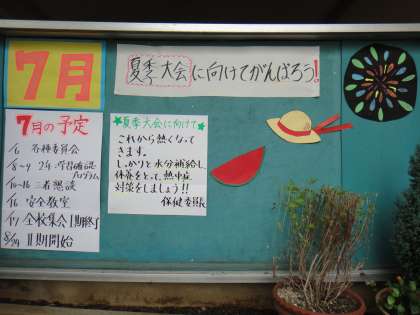 7月
夏季大会に向けてがんばろう!
7月の予定
1/6 各種委員会
8~9 2年学習確認プログラム
10~16 三者懇談
1/16 安全教室
1/17 全校集会 I期終了
8/29 II期開始
★夏季大会に向けて★
これから熱くなって
きます。
しっかりと水分補給し、
休養をとって、熱中症
対策をしましょう!!
保健委員長